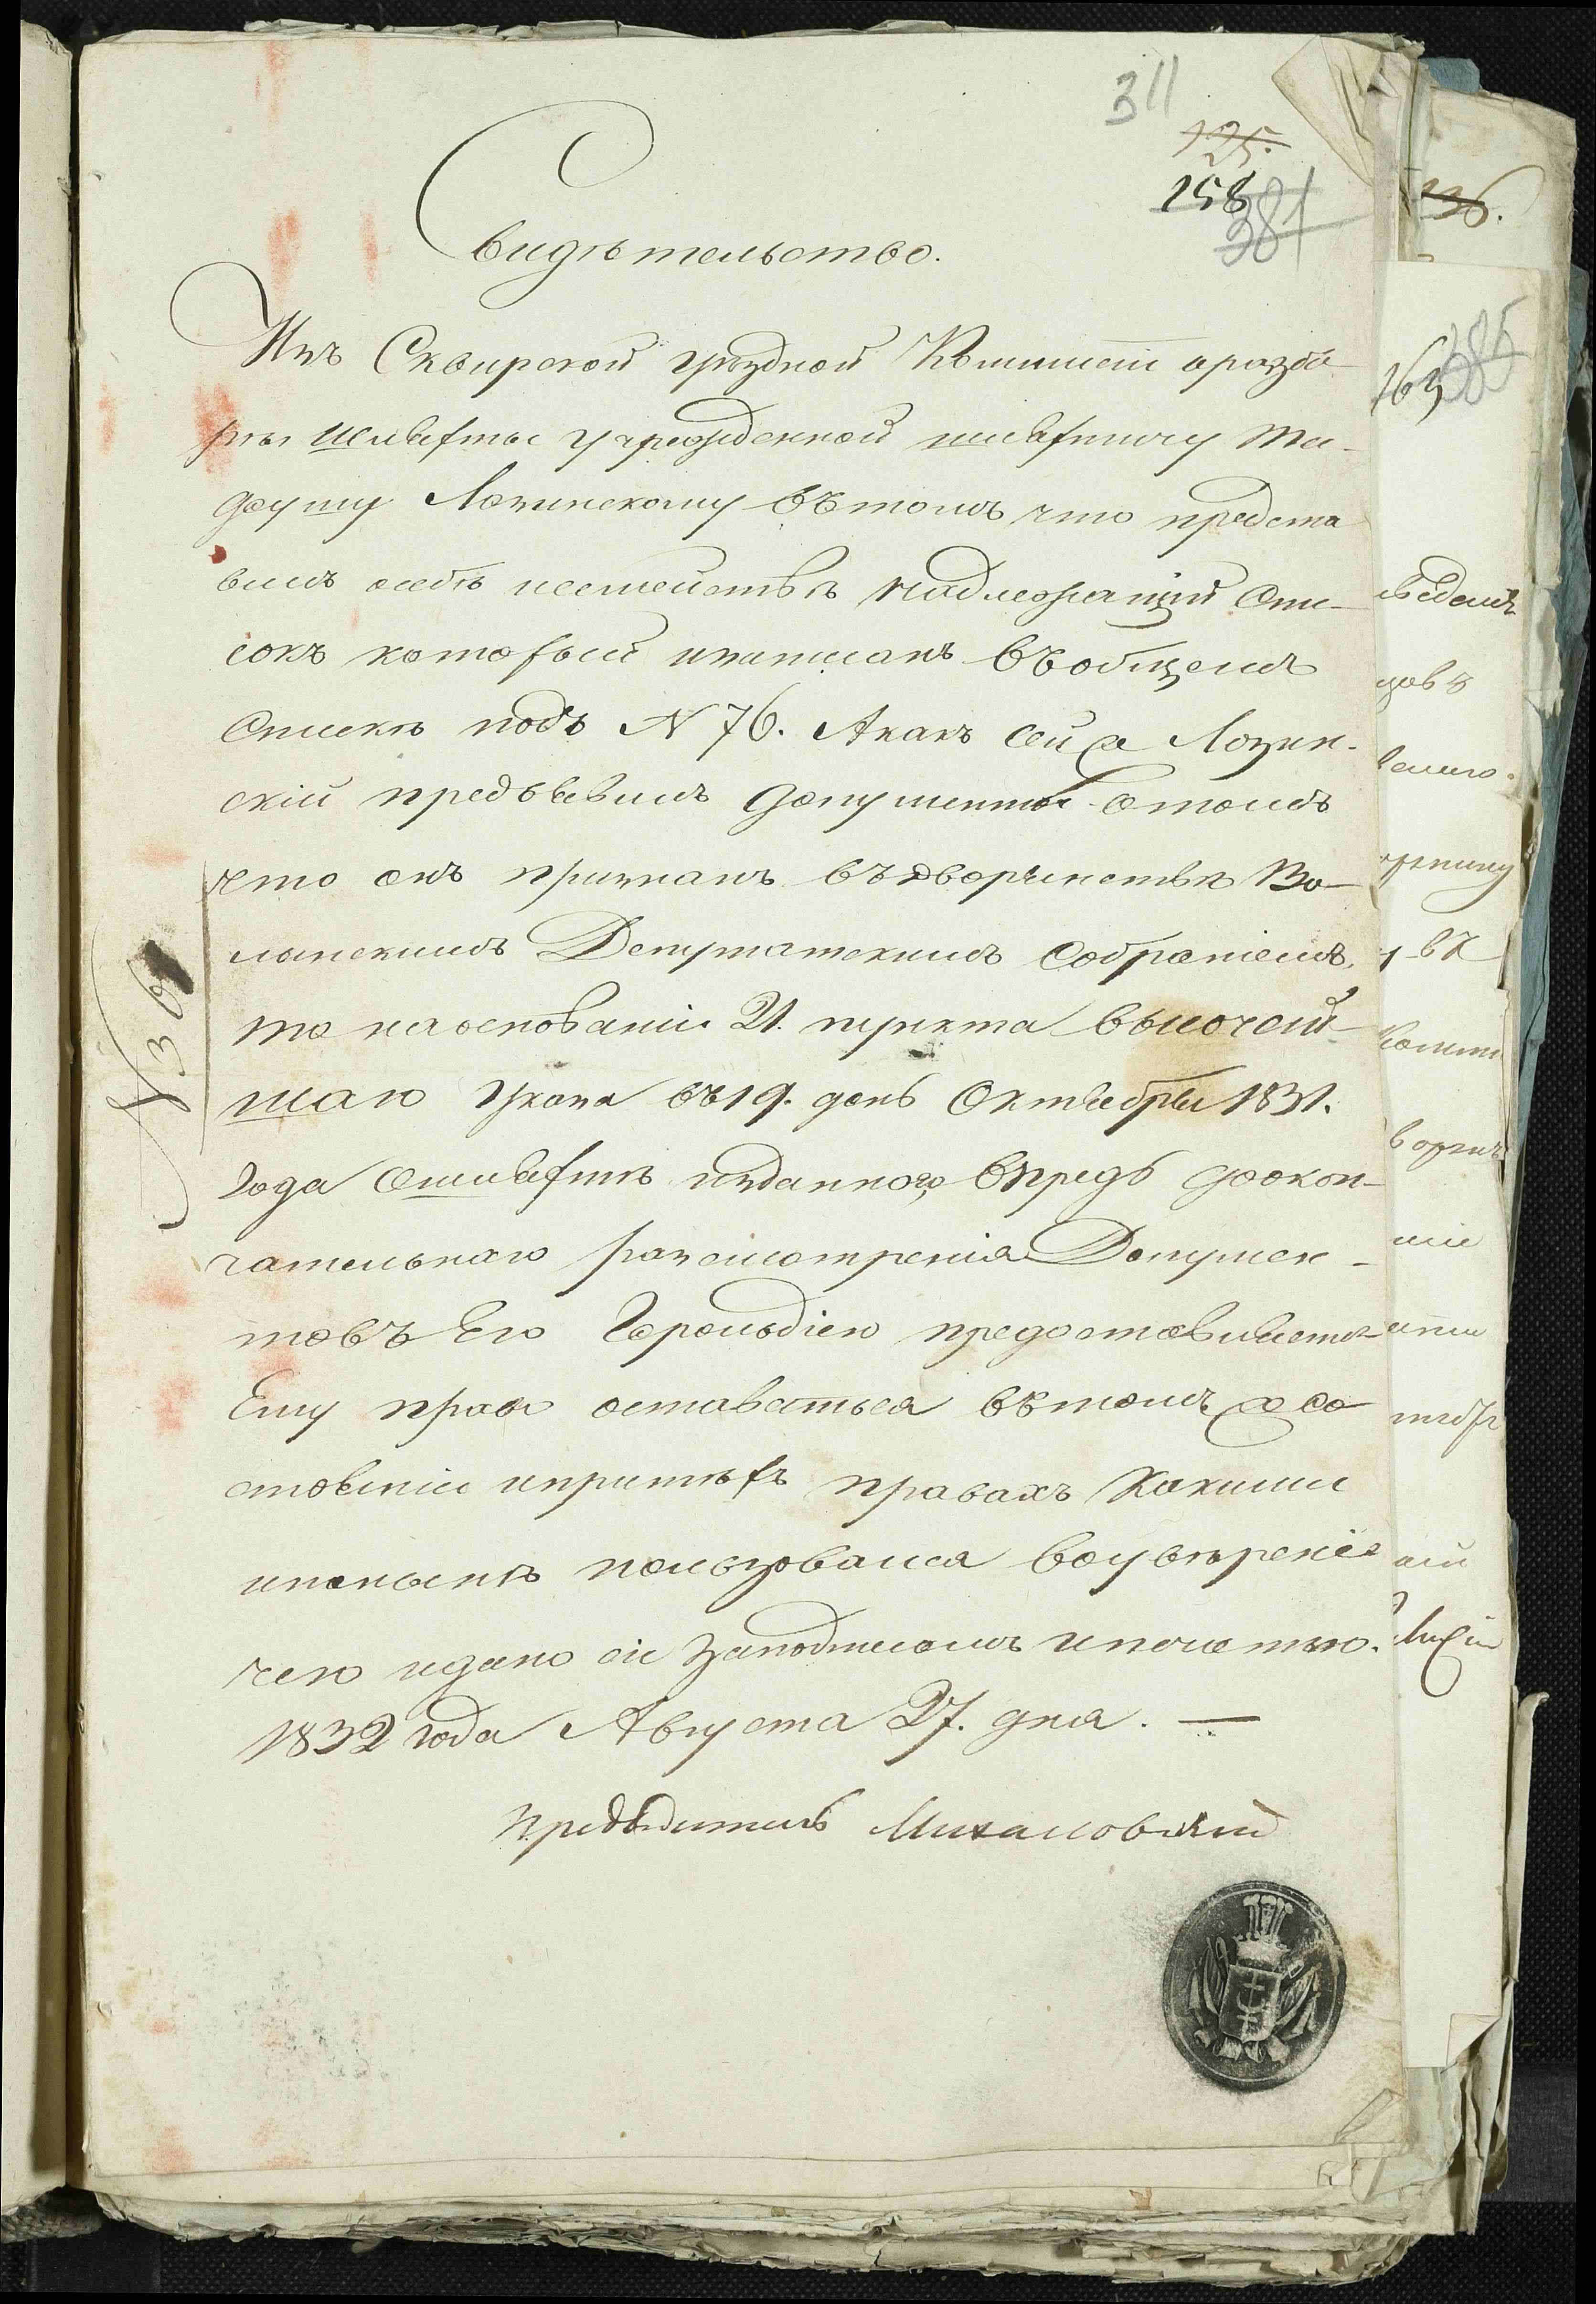 311
125.
158
381
Свидѣтельство.
Изъ Сквирской уѣздной Коммисіи о разбо
ры шляхты учрежденной шляхтичу Та-
деушу Лозинскому въ томъ что предста
вилъ о себѣ и семействѣ надлежащій спи-
сокъ который и записанъ въ общемъ
Списки подъ N 76. А какъ сей же Лозин-
скій предъявилъ документы о томъ
что онъ признанъ въ дворянствѣ Во-
лынскимъ Депутатскимъ Собраніемъ,
то на основаніи 21. пункта высочай-
шаго указа въ 19. день Октября 1831.
Года о шляхтѣ изданного, впредь до окон-
чательнаго разсмотренія Докумен-
товъ Его Герольдіею предоставляется
Ему право оставаться въ томъ же со
стояніи и при тѣхъ правахъ какими
и понынѣ пользовался во увѣреніе
чего и дано сіе за подписомъ и печатью.
1832 года Августа 27. дня. —
Предводитель Михаловский
N 30
136.
163
385